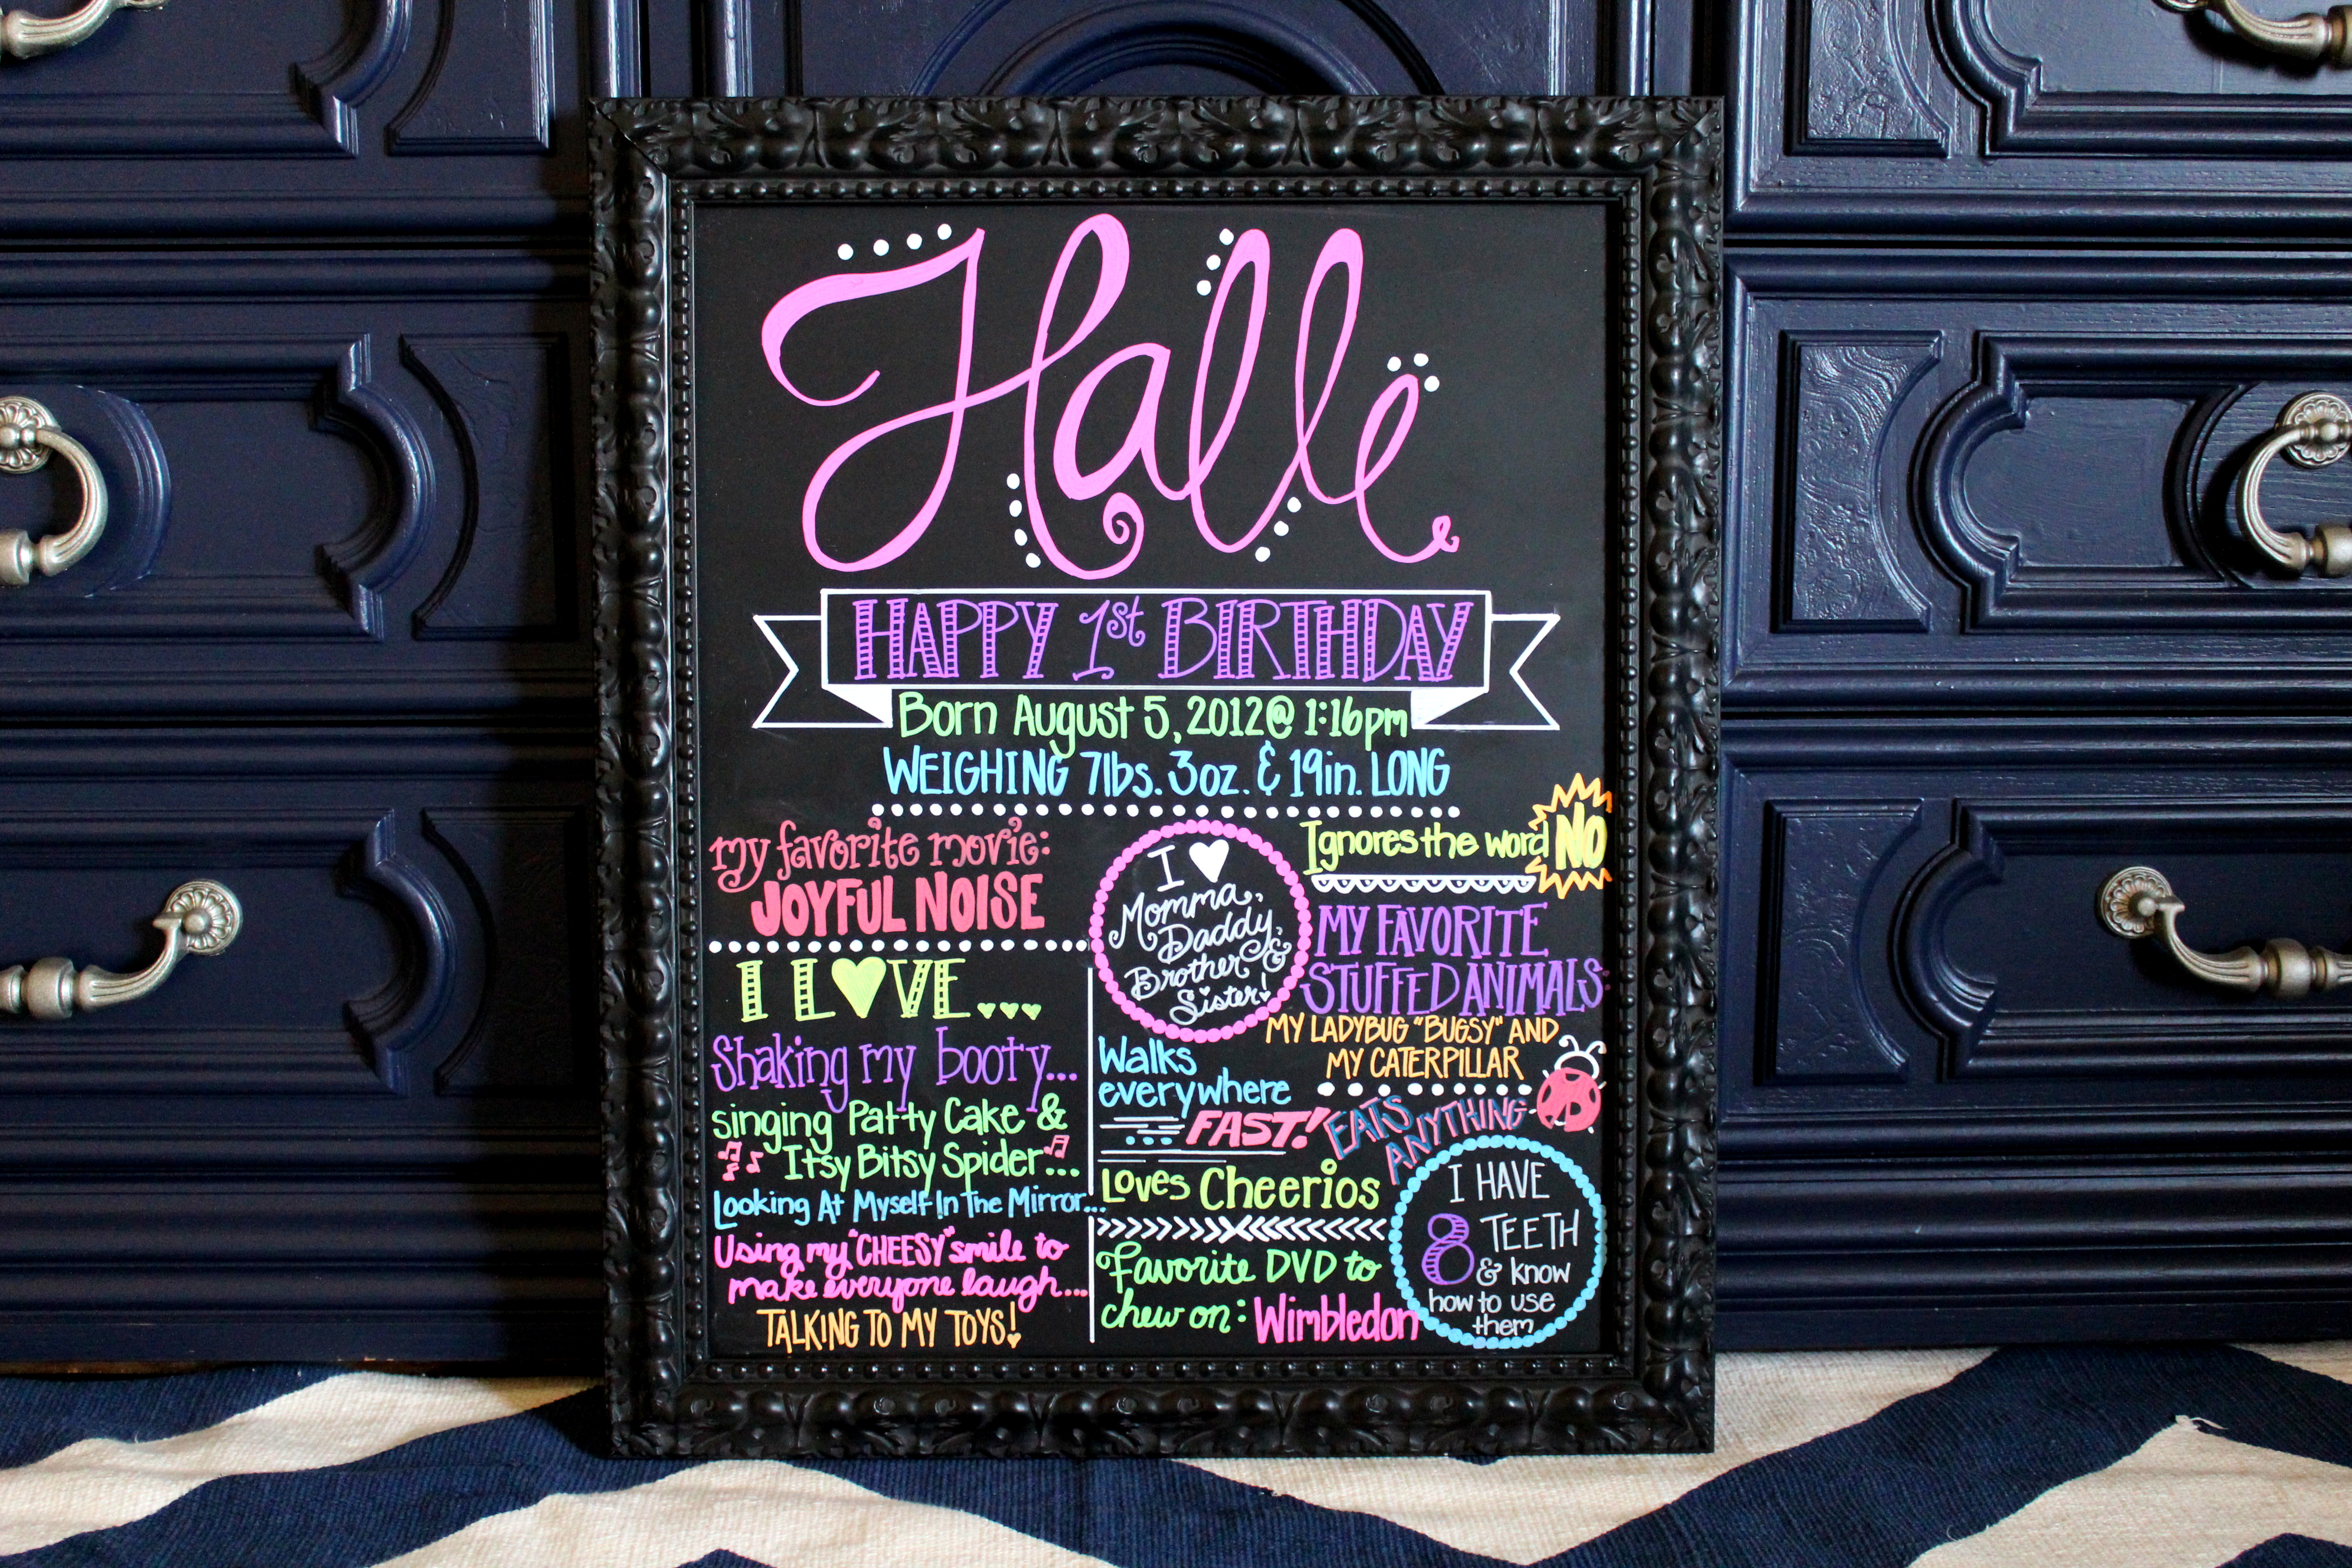 Halle
HAPPY 1st BIRTHDAY
Born August 5, 2012 @ 1:16pm
WEIGHING 7lbs. 3oz. & 19in. LONG
my favorite movie:
JOYFUL NOISE
I L♥VE...
Shaking my booty...
singing Patty Cake &
Itsy Bitsy Spider...
Looking At Myself In The Mirror...
Using my "CHEESY" smile to
make everyone laugh...
TALKING TO MY TOYS!
I ♥
Momma,
Daddy,
Brother &
Sister!
Walks
everywhere
FAST!
Loves Cheerios
Favorite DVD to
chew on: Wimbledon
Ignores the word NO
MY FAVORITE
STUFFED ANIMALS:
MY LADYBUG "BUGSY" AND
MY CATERPILLAR
EATS
ANYTHING
I HAVE
8 TEETH
& know
how to use
them